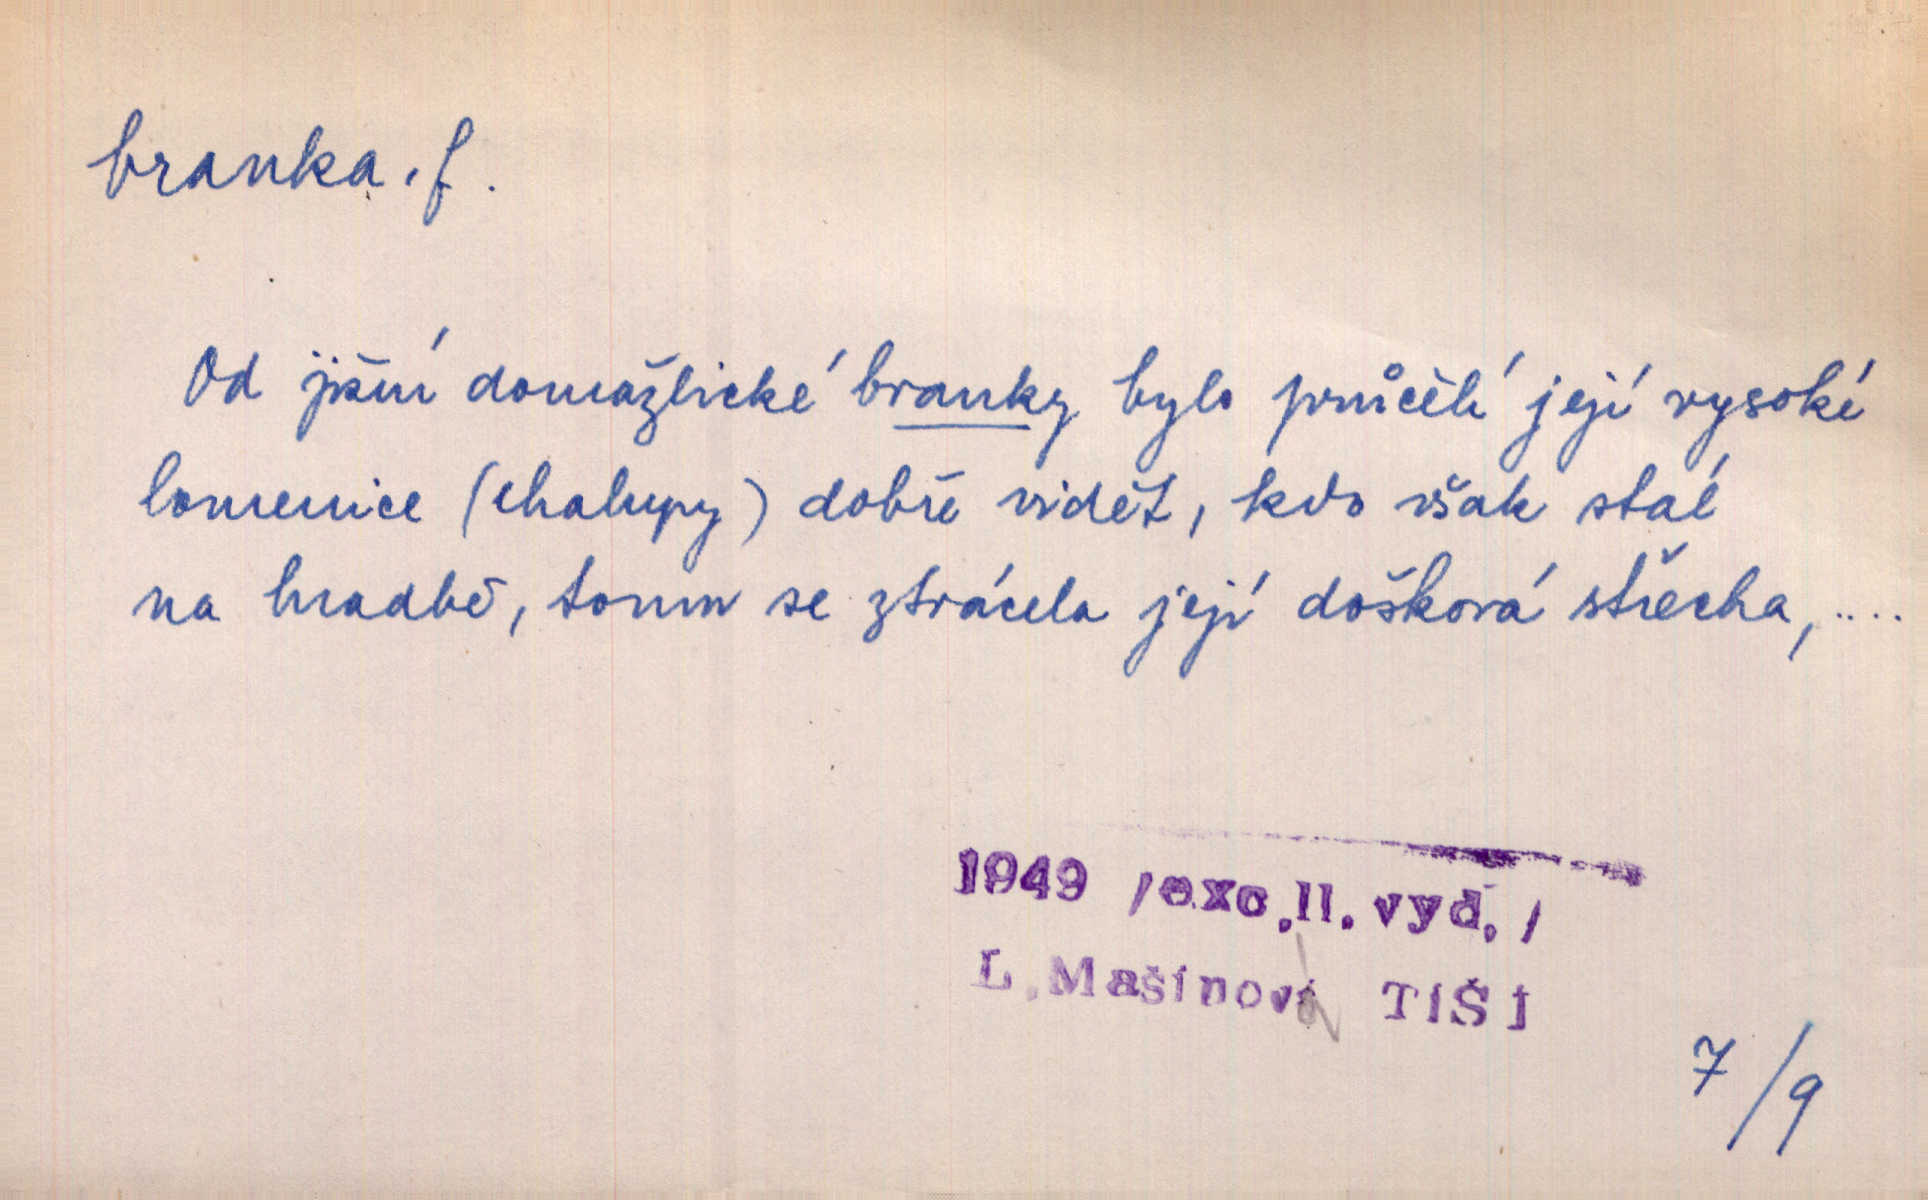 branka, f.
Od jižní domažlické branky bylo průčelí její vysoké
lomenice (chalupy) dobře vidět, kdo však stál
na hradbě, tomu se ztrácela její došková střecha, ....
1949 /exc.II. vyd./
L. Mašínová TIŠ 1
7/9